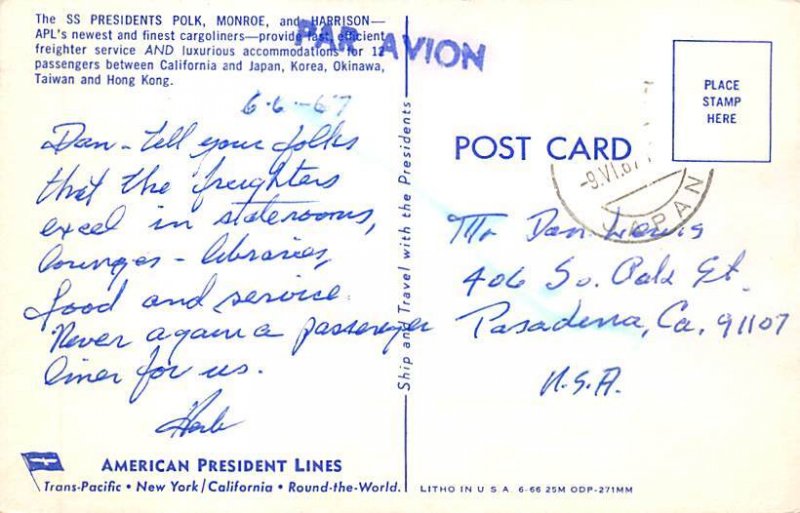 The SS PRESIDENTS POLK, MONROE, and HARRISON—
APL's newest and finest cargoliners—provide fast, efficient
freighter service AND luxurious accommodations for 12
passengers between California and Japan, Korea, Okinawa,
Taiwan and Hong Kong.
PAR AVION
6-6-67
Dan - tell your folks
that the freighters
excel in staterooms,
lounges - libraries,
food and service.
Never again a passenger
liner for us.
Herb
AMERICAN PRESIDENT LINES
Trans-Pacific • New York/California • Round-the-World.
Ship and Travel with the Presidents
PLACE
STAMP
HERE
POST CARD
-9.VI.67
JAPAN
Mr Dan Lewis
406 So. Oak St.
Pasadena, Ca. 91107
U.S.A.
LITHO IN U S A 6-66 25M ODP-271MM